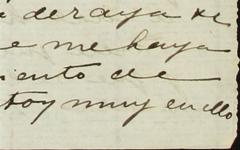 deraya de
e me haya
iento de
toy muy en ello